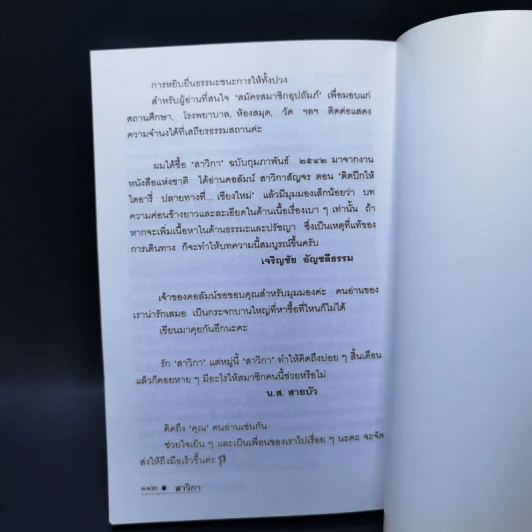 การหยิบยื่นธรรมะชนะการให้ทั้งปวง
สำหรับผู้อ่านที่สนใจ 'สมัครสมาชิกอุปถัมภ์' เพื่อมอบแก่
สถานศึกษา, โรงพยาบาล, ห้องสมุด, วัด ฯลฯ ติดต่อแสดง
ความจำนงได้ที่เสถียรธรรมสถานค่ะ
ผมได้ซื้อ 'สาวิกา' ฉบับกุมภาพันธ์ ๒๕๔๒ มาจากงาน
หนังสือแห่งชาติ ได้อ่านคอลัมน์ สาวิกาสัญจร ตอน 'ติดปีกให้
ไดอารี่ ปลายทางที่... เชียงใหม่' แล้วมีมุมมองเล็กน้อยว่า บท
ความค่อนข้างยาวและละเอียดในด้านเนื้อเรื่องเบา ๆ เท่านั้น ถ้า
หากจะเพิ่มเนื้อหาในด้านธรรมะและปรัชญา ซึ่งเป็นเหตุที่แท้ของ
การเดินทาง ก็จะทำให้บทความนี้สมบูรณ์ขึ้นครับ
เจริญชัย อัญชลีธรรม
เจ้าของคอลัมน์ขอขอบคุณสำหรับมุมมองค่ะ คนอ่านของ
เราน่ารักเสมอ เป็นกระจกบานใหญ่ที่หาซื้อที่ไหนก็ไม่ได้
เขียนมาคุยกันอีกนะคะ
รัก 'สาวิกา' แต่หมู่นี้ 'สาวิกา' ทำให้คิดถึงบ่อย ๆ สิ้นเดือน
แล้วก็คอยหาย ๆ มีอะไรให้สมาชิกคนนี้ช่วยหรือไม่
น.ส. สายบัว
คิดถึง 'คุณ' คนอ่านเช่นกัน
ช่วยใจเย็น ๆ และเป็นเพื่อนของเราไปเรื่อย ๆ นะคะ จะจัด
ส่งให้ถึงมือเร็วขึ้นค่ะ
๑๑๒ ● สาวิกา